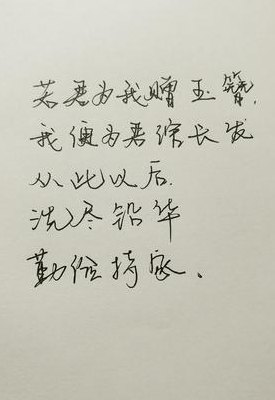 若君为我赠玉簪，
我便为君绾长发
从此以后.
洗尽铅华
勤俭持家、